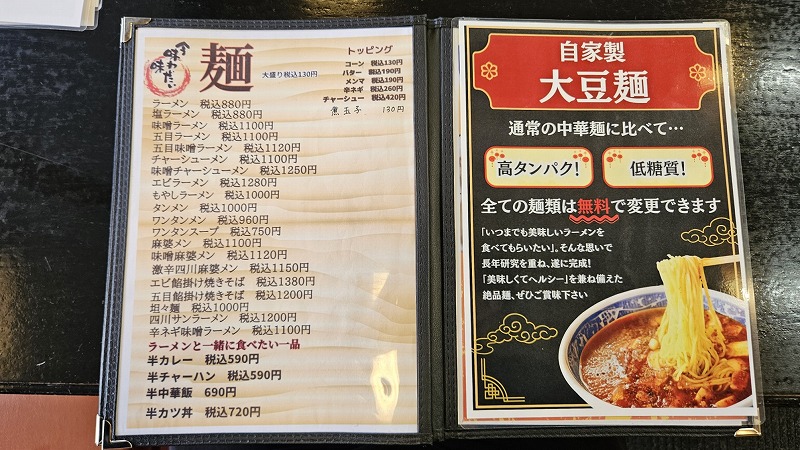 今味わたい味
麺
大盛り税込130円
トッピング
コーン 税込130円
バター 税込190円
メンマ 税込190円
辛ネギ 税込260円
チャーシュー 税込420円
煮玉子 130円
ラーメン 税込880円
塩ラーメン 税込880円
味噌ラーメン 税込1100円
五目ラーメン 税込1100円
五目味噌ラーメン 税込1120円
チャーシューメン 税込1100円
味噌チャーシューメン 税込1250円
エビラーメン 税込1280円
もやしラーメン 税込1000円
タンメン 税込1000円
ワンタンメン 税込960円
ワンタンスープ 税込750円
麻婆メン 税込1100円
味噌麻婆メン 税込1120円
激辛四川麻婆メン 税込1150円
エビ餡掛け焼きそば 税込1380円
五目餡掛け焼きそば 税込1200円
坦々麺 税込1000円
四川サンラーメン 税込1200円
辛ネギ味噌ラーメン 税込1100円
ラーメンと一緒に食べたい一品
半カレー 税込590円
半チャーハン 税込590円
半中華飯 690円
半カツ丼 税込720円
自家製
大豆麺
通常の中華麺に比べて…
高タンパク!
低糖質!
全ての麺類は無料で変更できます
「いつまでも美味しいラーメンを
食べてもらいたい」、そんな思いで
長年研究を重ね、遂に完成!
「美味しくてヘルシー」を兼ね備えた
絶品麺、ぜひご賞味下さい